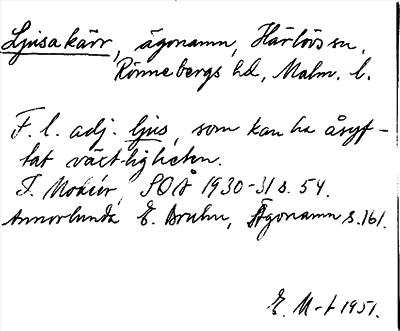 Ljusa kärr, ägonamn, Härlövs sn,
Rönnebergs hd, Malm. l.
F. l. adj. ljus, som kan ha åsyf-
tat växtligheten.
T. Modéer, SOÅ 1930-31 s. 54.
Annorlunda E. Bruhn, Ägonamn s. 161.
E. M-t 1951.